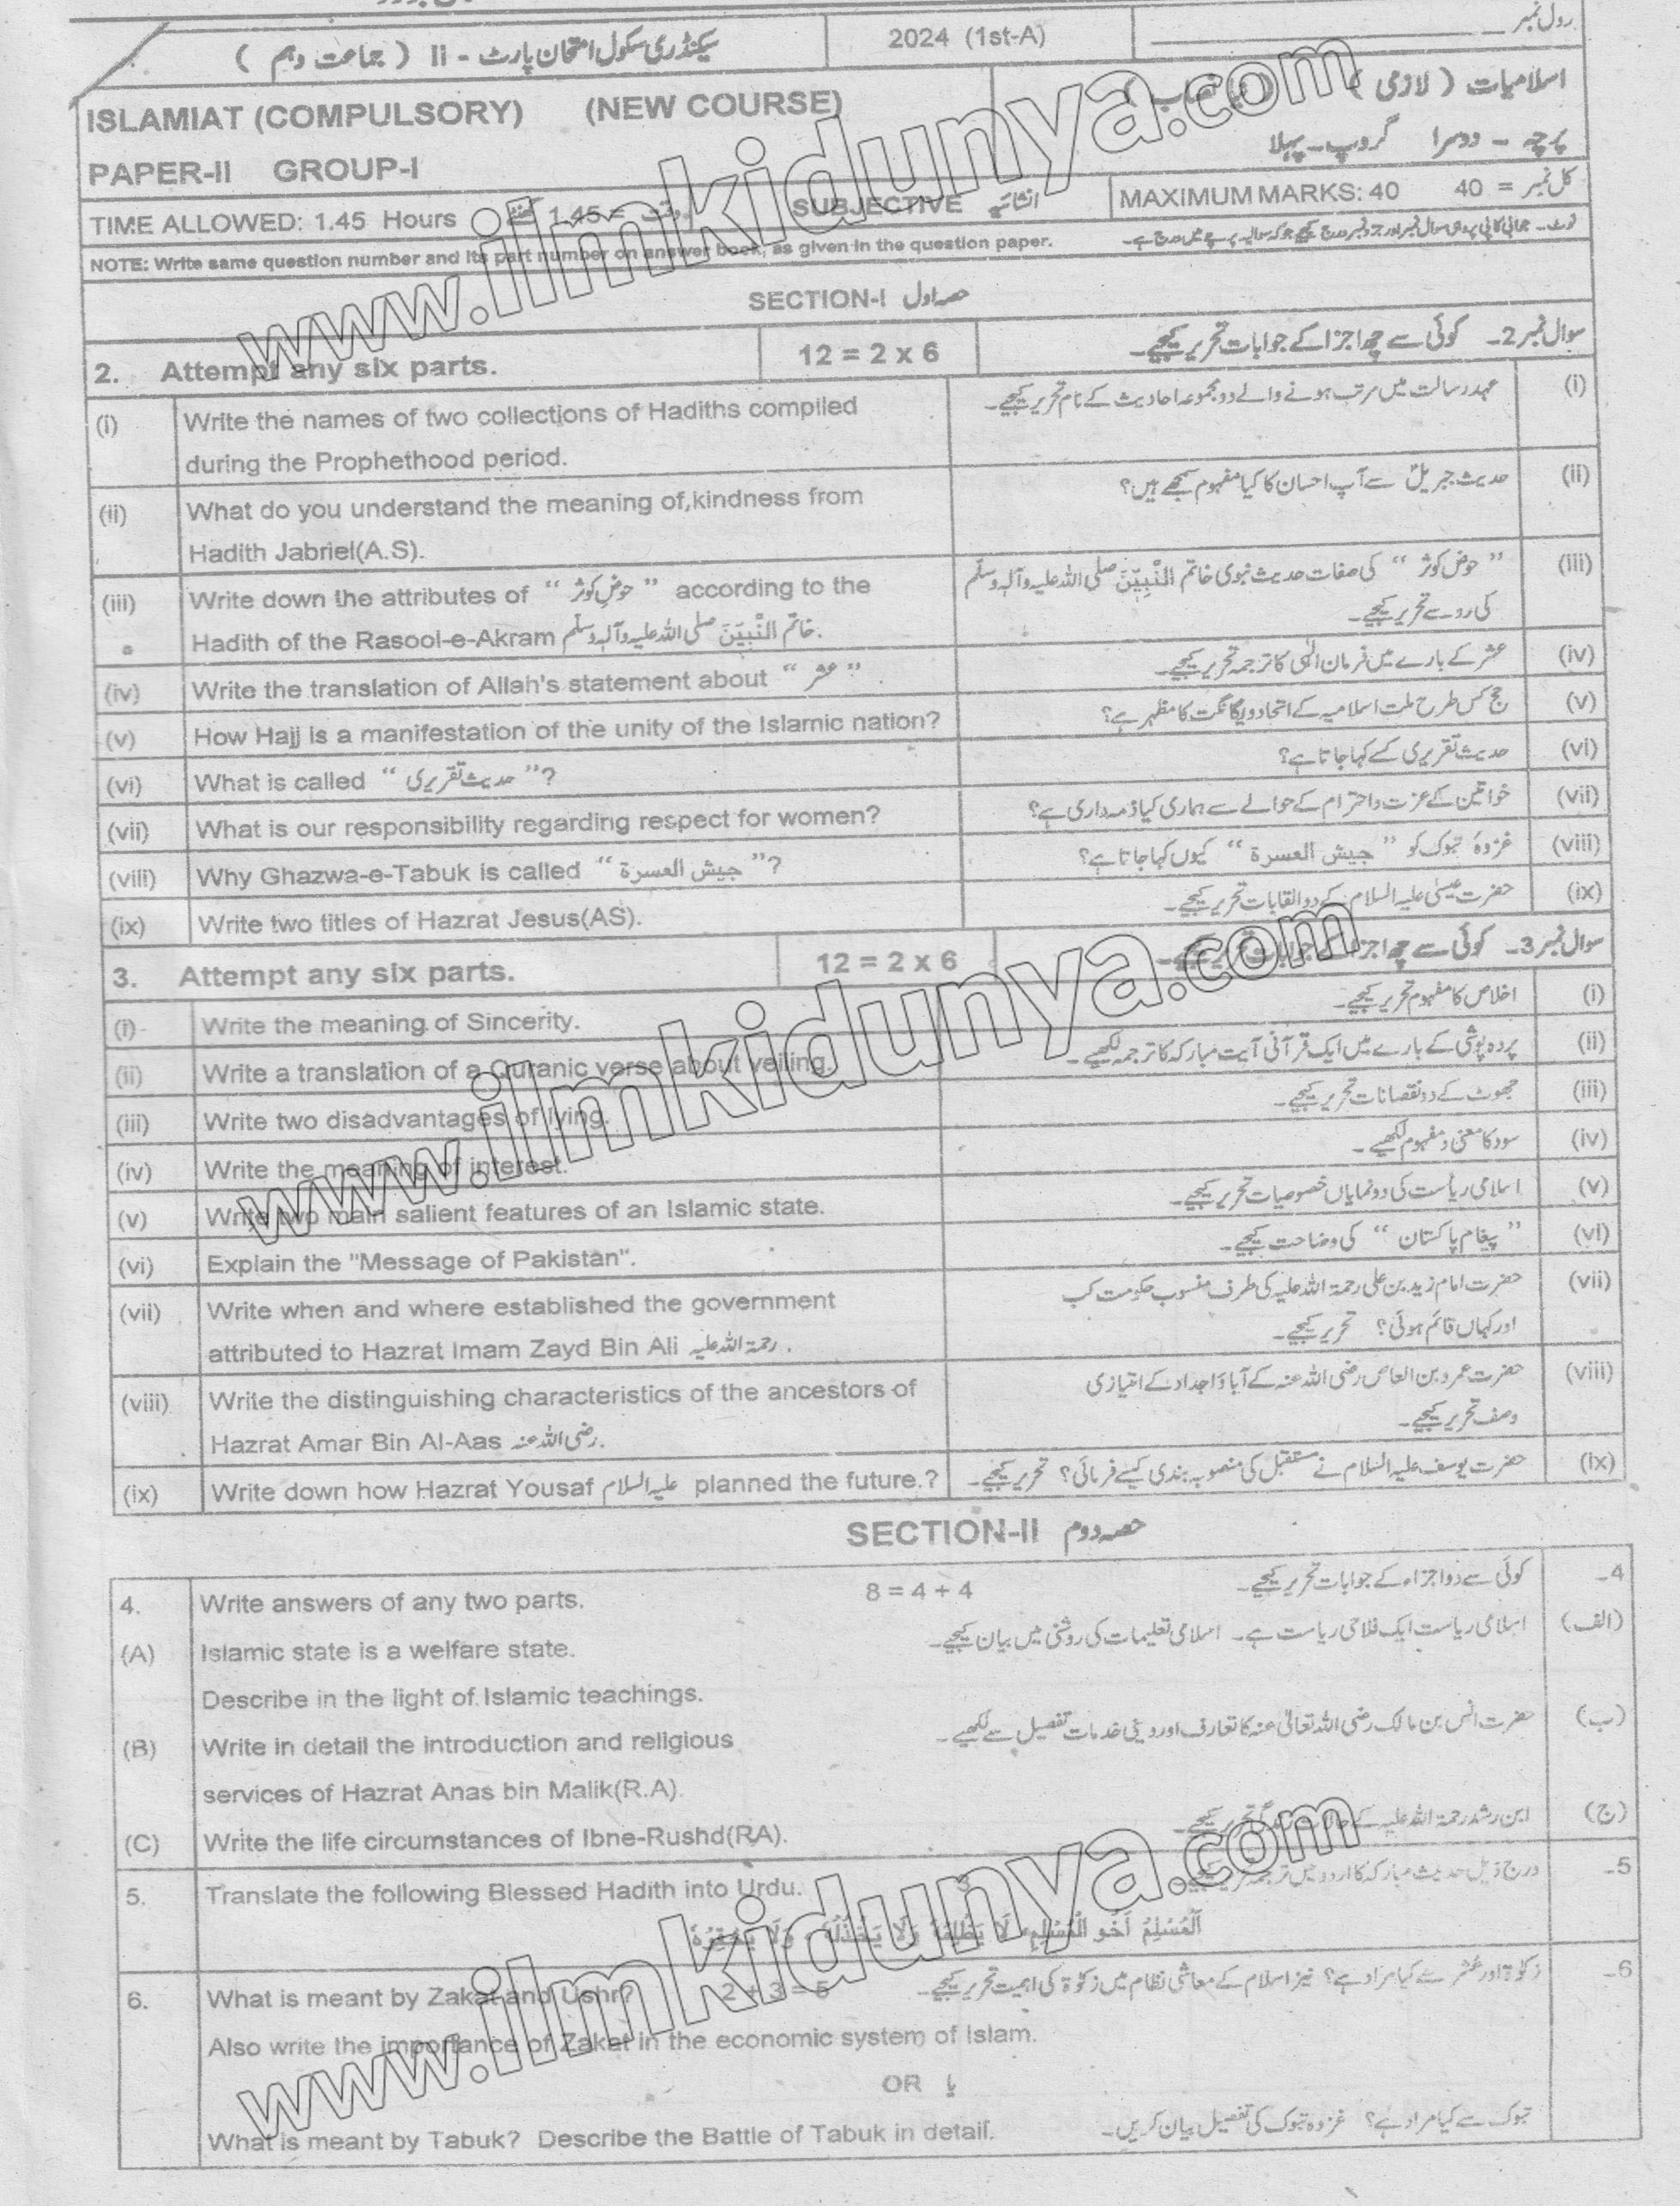 سیکنڈری سکول امتحان پارٹ - II ( جماعت دہم )
2024 (1st-A)
رول نمبر
ISLAMIAT (COMPULSORY) (NEW COURSE)
اسلامیات ( لازمی )
PAPER-II GROUP-I
پرچہ - دوسرا گروپ - پہلا
TIME ALLOWED: 1.45 Hours
وقت = 1.45 گھنٹے
SUBJECTIVE انشائیہ
MAXIMUM MARKS: 40
کل نمبر = 40
NOTE: Write same question number and its part number on answer book, as given in the question paper.
نوٹ۔ جوابی کاپی پر وہی سوال نمبر اور جزو نمبر درج کیجیے جو کہ سوالیہ پرچے میں درج ہے۔
SECTION-I حصہ اول
2. Attempt any six parts.
12 = 2 x 6
سوال نمبر 2۔ کوئی سے چھ اجزا کے جوابات تحریر کیجیے۔
(i) Write the names of two collections of Hadiths compiled
during the Prophethood period.
عہد رسالت میں مرتب ہونے والے دو مجموعہ احادیث کے نام تحریر کیجیے۔ (i)
(ii) What do you understand the meaning of,kindness from
Hadith Jabriel(A.S).
حدیث جبریلؑ سے آپ احسان کا کیا مفہوم سمجھے ہیں؟ (ii)
(iii) Write down the attributes of “ حوضِ کوثر ” according to the
Hadith of the Rasool-e-Akram خاتم النّبیّین صلی اللہ علیہ وآلہٖ وسلّم.
“ حوض کوثر ” کی صفات حدیث نبوی خاتم النّبیّین صلی اللہ علیہ وآلہٖ وسلّم (iii)
کی رو سے تحریر کیجیے۔
(iv) Write the translation of Allah's statement about “ عشر ”.
عشر کے بارے میں فرمان الٰہی کا ترجمہ تحریر کیجیے۔ (iv)
(v) How Hajj is a manifestation of the unity of the Islamic nation?
حج کس طرح ملت اسلامیہ کے اتحاد و یگانگت کا مظہر ہے؟ (v)
(vi) What is called “ حدیث تقریری ”?
حدیث تقریری کسے کہا جاتا ہے؟ (vi)
(vii) What is our responsibility regarding respect for women?
خواتین کے عزت و احترام کے حوالے سے ہماری کیا ذمہ داری ہے؟ (vii)
(viii) Why Ghazwa-e-Tabuk is called “ جيش العسرة ”?
غزوۂ تبوک کو “ جيش العسرة ” کیوں کہا جاتا ہے؟ (viii)
(ix) Write two titles of Hazrat Jesus(AS).
حضرت عیسیٰ علیہ السلام کے دو القابات تحریر کیجیے۔ (ix)
3. Attempt any six parts.
12 = 2 x 6
سوال نمبر 3۔ کوئی سے چھ اجزا کے جوابات تحریر کیجیے۔
(i) Write the meaning of Sincerity.
اخلاص کا مفہوم تحریر کیجیے۔ (i)
(ii) Write a translation of a Quranic verse about veiling.
پردہ پوشی کے بارے میں ایک قرآنی آیت مبارکہ کا ترجمہ لکھیے۔ (ii)
(iii) Write two disadvantages of lying.
جھوٹ کے دو نقصانات تحریر کیجیے۔ (iii)
(iv) Write the meaning of interest.
سود کا معنی و مفہوم لکھیے۔ (iv)
(v) Write two main salient features of an Islamic state.
اسلامی ریاست کی دو نمایاں خصوصیات تحریر کیجیے۔ (v)
(vi) Explain the "Message of Pakistan".
“ پیغام پاکستان ” کی وضاحت کیجیے۔ (vi)
(vii) Write when and where established the government
attributed to Hazrat Imam Zayd Bin Ali رحمۃ اللہ علیہ.
حضرت امام زید بن علی رحمۃ اللہ علیہ کی طرف منسوب حکومت کب (vii)
اور کہاں قائم ہوئی؟ تحریر کیجیے۔
(viii) Write the distinguishing characteristics of the ancestors of
Hazrat Amar Bin Al-Aas رضی اللہ عنہ.
حضرت عمرو بن العاص رضی اللہ عنہ کے آباؤ اجداد کے امتیازی (viii)
وصف تحریر کیجیے۔
(ix) Write down how Hazrat Yousaf علیہ السلام planned the future.?
حضرت یوسف علیہ السلام نے مستقبل کی منصوبہ بندی کیسے فرمائی؟ تحریر کیجیے۔ (ix)
SECTION-II حصہ دوم
4. Write answers of any two parts.
8 = 4 + 4
کوئی سے دو اجزاء کے جوابات تحریر کیجیے۔ 4۔
(A) Islamic state is a welfare state.
اسلامی ریاست ایک فلاحی ریاست ہے۔ اسلامی تعلیمات کی روشنی میں بیان کیجیے۔ (الف)
Describe in the light of Islamic teachings.
(B) Write in detail the introduction and religious
services of Hazrat Anas bin Malik(R.A).
حضرت انس بن مالک رضی اللہ تعالیٰ عنہ کا تعارف اور دینی خدمات تفصیل سے لکھیے۔ (ب)
(C) Write the life circumstances of Ibne-Rushd(RA).
ابن رشد رحمۃ اللہ علیہ کے حالات زندگی تحریر کیجیے۔ (ج)
5. Translate the following Blessed Hadith into Urdu.
3
درج ذیل حدیث مبارکہ کا اردو میں ترجمہ تحریر کیجیے۔ 5۔
اَلْمُسْلِمُ اَخُو الْمُسْلِمِ لَا يَظْلِمُهٗ وَلَا يَخْذُلُهٗ وَلَا يَحْقِرُهٗ
6. What is meant by Zakat and Ushr?
2 + 3 = 5
زکوٰۃ اور عشر سے کیا مراد ہے؟ نیز اسلام کے معاشی نظام میں زکوٰۃ کی اہمیت تحریر کیجیے۔ 6۔
Also write the importance of Zakat in the economic system of Islam.
OR یا
What is meant by Tabuk? Describe the Battle of Tabuk in detail.
تبوک سے کیا مراد ہے؟ غزوہ تبوک کی تفصیل بیان کریں۔
www.ilmkidunya.com
www.ilmkidunya.com
www.ilmkidunya.com